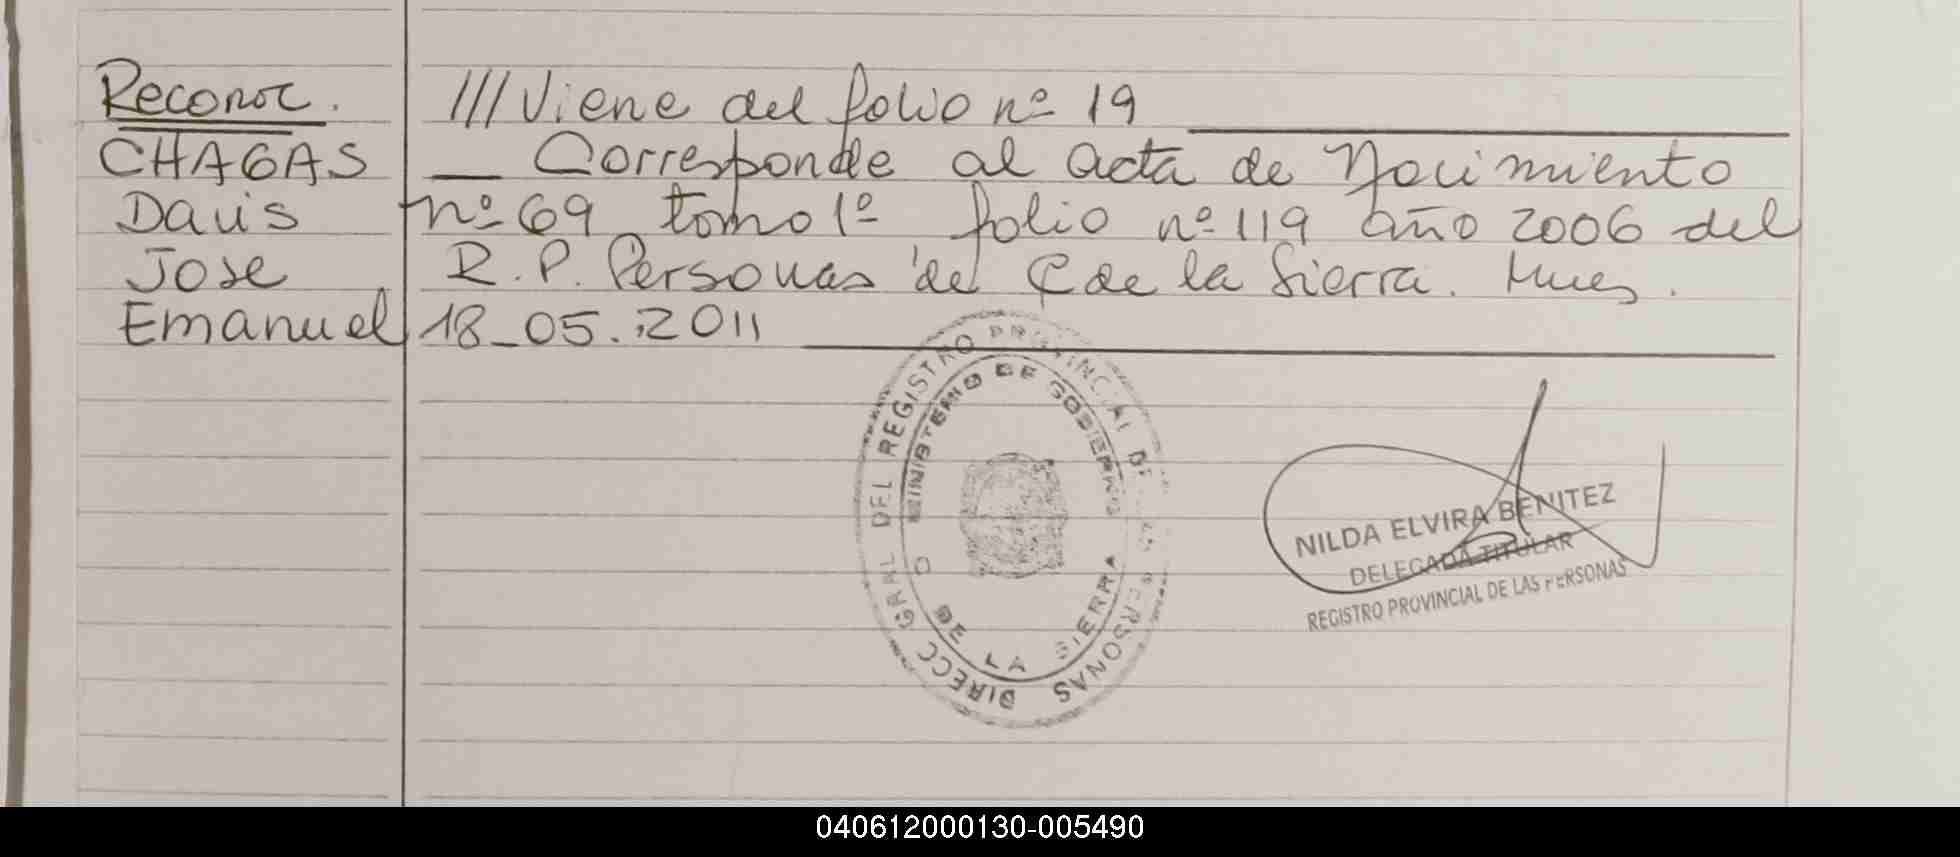 Reconoc.
CHAGAS
Davis
Jose
Emanuel
/// Viene del folio nº 19
Corresponde al acta de Nacimiento
nº 69 tomo 1º folio nº 119 año 2006 del
R. P. Personas de C de la Sierra. Mnes.
18_05.2011
DIRECC GRAL DEL REGISTRO PROVINCIAL DE LAS PERSONAS
MINISTERIO DE GOBIERNO
DE LA SIERRA
NILDA ELVIRA BENITEZ
DELEGADA TITULAR
REGISTRO PROVINCIAL DE LAS PERSONAS
040612000130-005490